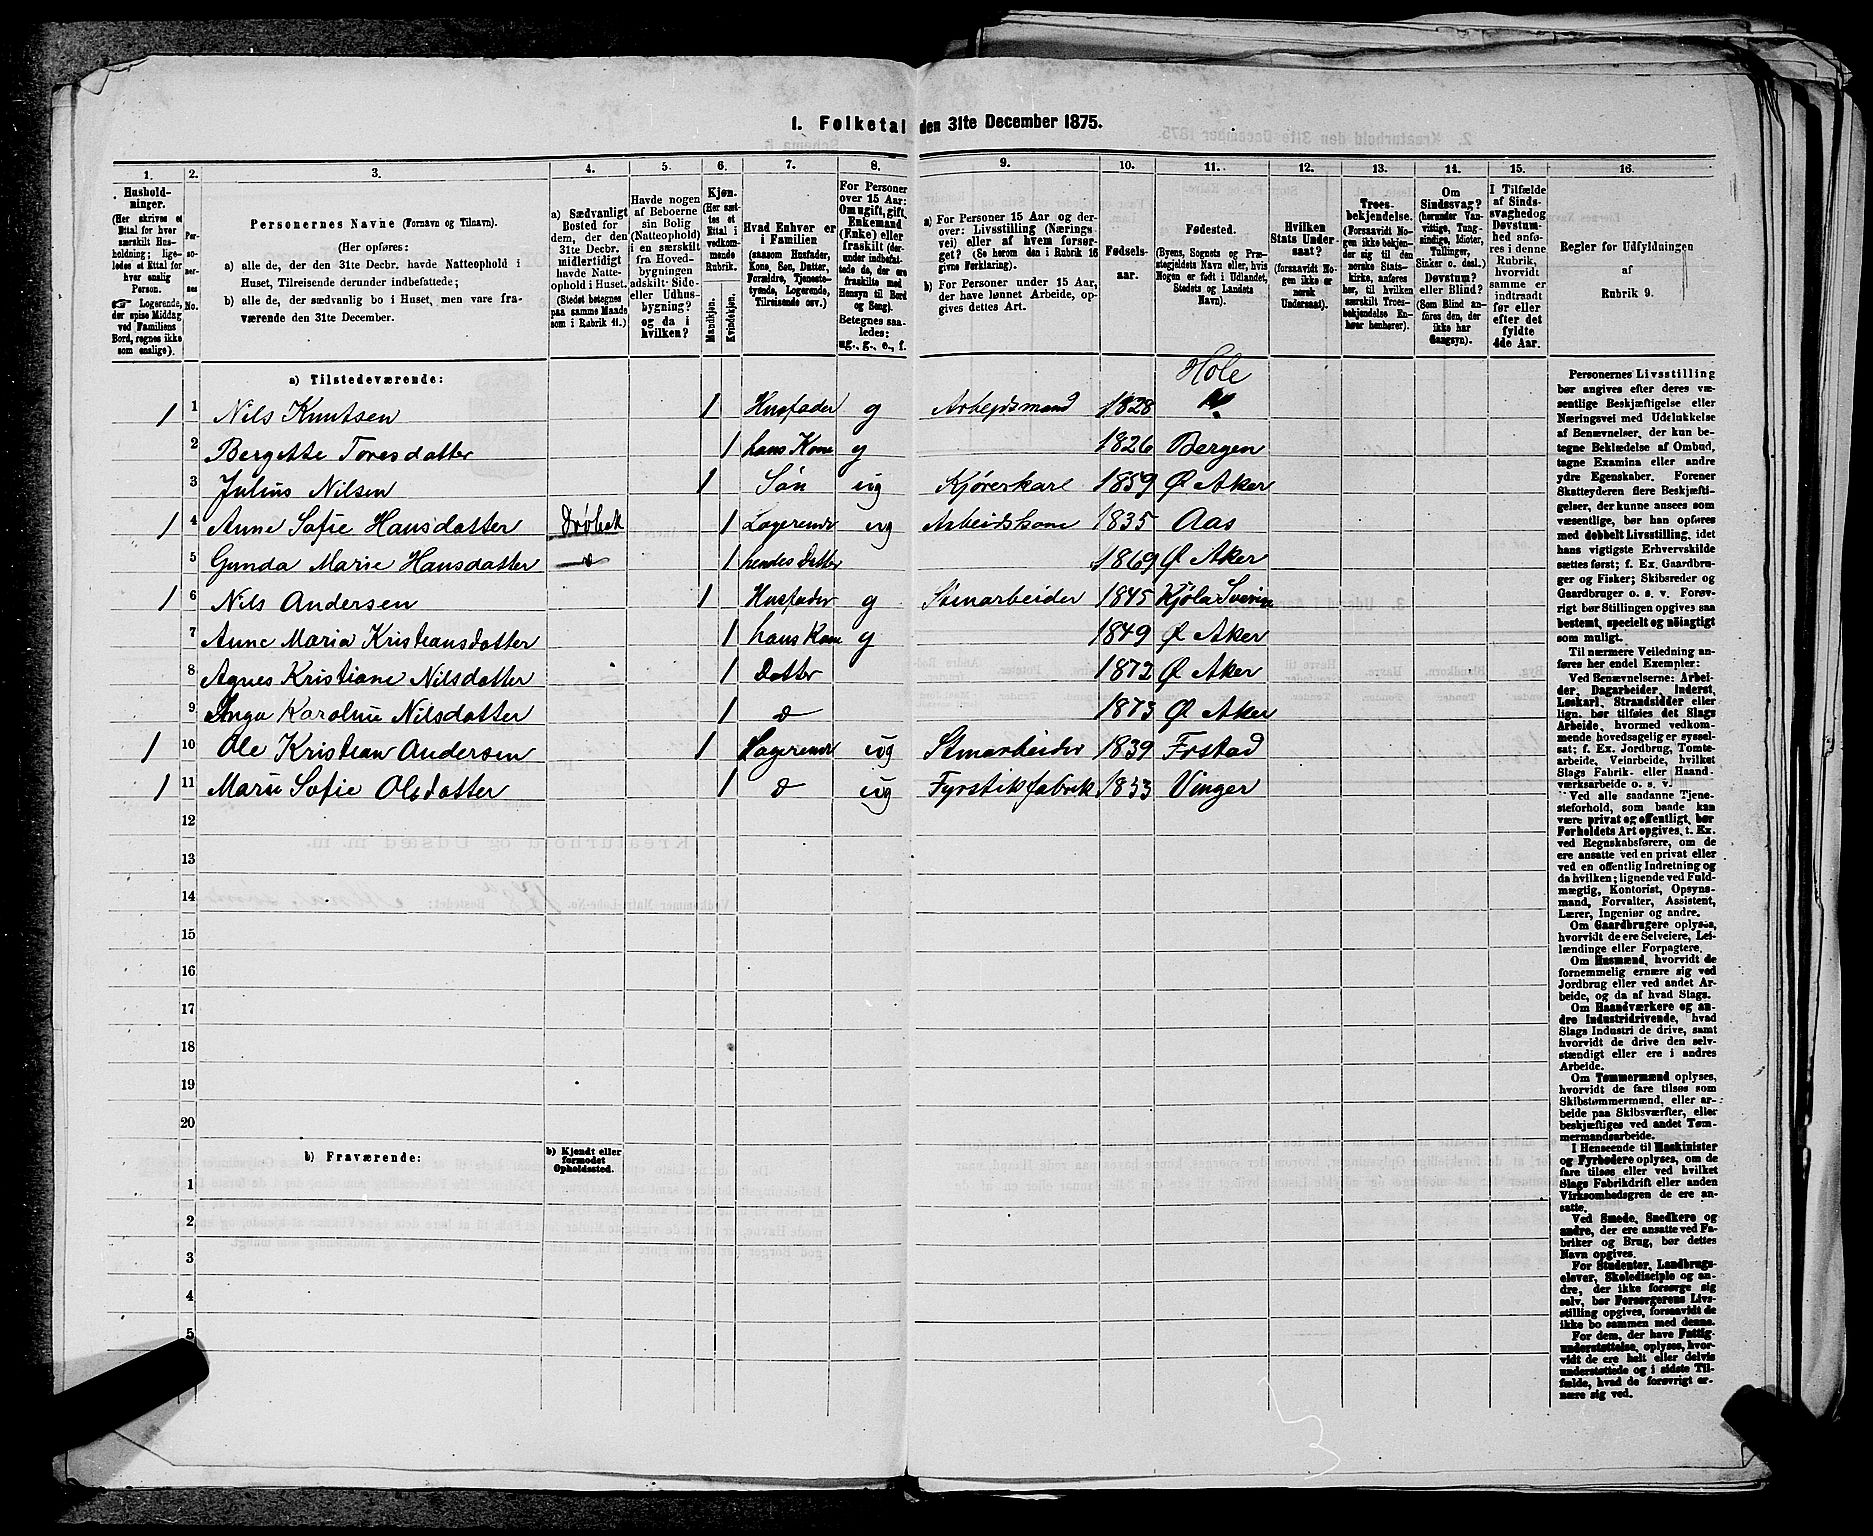 1. Folketal den 31te December 1875.
1. 2. 3. 4. 5. 6. 7. 8. 9. 10. 11. 12. 13. 14. 15. 16.
Hushold-
ninger.
(Her skrives et
Ettal for hver
særskilt Hus-
holdning; lige-
ledes et Ettal for
hver enslig
Person.
Logerende,
der spise Middag
ved Familiens
Bord, regnes ikke
som enslige).
Per-
so-
ner-
nes
No.
Personernes Navne (Fornavn og Tilnavn).
(Her opføres:
a) alle de, der den 31te Decbr. havde Natteophold i
Huset, Tilreisende derunder indbefattede;
b) alle de, der sædvanlig bo i Huset, men vare fra-
værende den 31te December.
a) Sædvanligt
Bosted for
dem, der den
31te Decbr.
midlertidigt
havde Natte-
ophold i Huset.
(Stedet betegnes
paa samme Maade
som i Rubrik 11.)
Havde nogen
af Beboerne
sin Bolig
(Natteophold)
i en særskilt
fra Hoved-
bygningen
adskilt Side-
eller Udhus-
bygning?
og da i
hvilken?
Kjøn.
(Her sæt-
tes et
Ettal i
vedkom-
mende
Rubrik.
Mandkjøn.
Kvindekjøn.
Hvad Enhver er
i Familien
(saasom Husfader,
Kone, Søn, Datter,
Forældre, Tjeneste-
tyende, Logerende,
Tilreisende osv.)
For Personer
over 15 Aar:
Om ugift, gift,
Enkemand
(Enke) eller
fraskilt (der-
under indbefat-
tede de, der ere
fraskilte med
Hensyn til Bord
og Seng).
Betegnes saa-
ledes:
ug., g., e., f.
a) For Personer 15 Aar og der-
over: Livsstilling (Nærings-
vei) eller af hvem forsør-
get? (Se herom den i Rubrik 16
givne Forklaring).
b) For Personer under 15 Aar,
der have lønnet Arbeide, op-
gives dettes Art.
Fødsels-
aar.
Fødested.
(Byens, Sognets og Præ-
stegjeldets Navn eller, hvis
Nogen er født i Udlandet,
Stedets og Landets
Navn).
Hvilken
Stats Under-
saat?
(forsaavidt No-
gen ikke er
norsk
Undersaat).
Troes-
bekjendelse.
(Forsaavidt No-
gen ikke bekjen-
der sig til den
norske Stats-
kirke, anføres
her, til hvilken
særskilt Troes-
bekjendelse En-
hver henhører).
Om
Sindssvag?
(herunder Van-
vittige, Tung-
sindige, Idioter,
Tullinger,
Sinker o. desl.)
Døvstum?
eller Blind?
(Som Blind an-
føres den, der
ikke har
Gangsyn).
I Tilfælde
af Sinds-
svaghed og
Døvstum-
hed anfø-
res i denne
Rubrik,
hvorvidt
samme er
indtraadt
før eller
efter det
fyldte
4de Aar.
Regler for Udfyldningen
af
Rubrik 9.
a) Tilstedeværende:
Hole
1 1 Nils Knutsen 1 Husfader g Arbejdsmand 1828
2 Bergette Toresdatter 1 hans Kone g 1826 Bergen
3 Julius Nilsen 1 Søn ug Kjøreskarl 1859 Ø Aker
1 4 Anne Sofie Hansdatter Drøbak 1 Logerende ug Arbeidskone 1835 Aas
5 Gunda Marie Hansdatter d 1 hendes Datter 1869 Ø Aker
1 6 Nils Andersen 1 Husfader g Stenarbeider 1845 Kjøla Sverin
7 Anne Maria Kristiansdatter 1 hans Kone g 1849 Ø Aker
8 Agnes Kristiane Nilsdatter 1 Datter 1872 Ø Aker
9 Inga Karoline Nilsdatter 1 d 1873 Ø Aker
1 10 Ole Kristian Andersen 1 Logerende ug Stenarbeider 1839 Frstad
1 11 Marie Sofie Olsdatter 1 d ug Fyrstikfabrik 1853 Vinger
12
13
14
15
16
17
18
19
20
b) Fraværende:
b) Kjendt eller
formodet
Opholdssted.
1
2
3
4
5
Personernes Livsstilling
bør angives efter deres væ-
sentlige Beskjæftigelse eller
Næringsvei med Udelukkelse
af Benævnelser, der kun be-
tegne Beklædelse af Ombud,
tagne Examina eller andre
ydre Egenskaber. Forener
Skatteyderen flere Beskjæfti-
gelser, der kunne ansees som
væsentlige, bør han opføres
med dobbelt Livsstilling, idet
hans vigtigste Erhvervskilde
sættes først; f. Ex. Gaardbru-
ger og Fisker; Skibsreder og
Gaardbruger o. s. v. Forøv-
rigt bør Stillingen opgives saa
bestemt, specielt og nøiagtigt
som muligt.
Til nærmere Veiledning an-
føres her endel Exempler:
Ved Benævnelserne: Arbei-
der, Dagarbeider, Inderst,
Løskarl, Strandsidder eller
lign. bør tilføies det Slags
Arbeide, hvormed vedkom-
mende hovedsagelig er syssel-
sat; f. Ex. Jordbrug, Tomte-
arbeide, Veiarbeide, hvilket
Slags Fabrik- eller Haand-
værksarbeide o. s. v.
Ved alle saadanne Tjene-
steforhold, som baade kan
være privat og offentligt, bør
Forholdets Art opgives, t. Ex.
ved Regnskabsførere, om de
ere ansatte ved en privat eller
ved en offentlig Indretning og
da hvilken; lignende ved Fuld-
mægtig, Kontorist, Opsyns-
mand, Forvalter, Assistent,
Lærer, Ingeniør og andre.
Om Gaardbrugere oplyses,
hvorvidt de ere Selveiere, Lei-
lændinge eller Forpagtere.
Om Husmænd, hvorvidt de
fornemmelig ernære sig ved
Jordbrug eller ved andet Ar-
beide, og da af hvad Slags.
Om Haandværkere og an-
dre Industridrivende, hvad
Slags Industri de drive, samt
hvorvidt de drive den selv-
stændigt eller ere i andres
Arbeide.
Om Tømmermænd oplyses,
hvorvidt de fare tilsøs som
Skibstømmermænd, eller ar-
beide paa Skibsværfter, eller
beskjæftiges ved andet Tøm-
mermandsarbeide.
I Henseende til Maskinister
og Fyrbødere oplyses, om de
fare tilsøs eller ved hvilket
Slags Fabrikdrift eller anden
Virksomhedsgren de ere an-
satte.
Ved Smede, Snedkere og
andre, der ere ansatte ved Fa-
briker og Brug, bør dettes
Navn opgives.
For Studenter, Landbrugs-
elever, Skoledisciple og an-
dre, der ikke forsørge sig
selv, bør Forsørgerens Livs-
stilling opgives, forsaavidt de
ikke bo sammen med denne.
For dem, der have Fattig-
understøttelse, oplyses, hvor-
vidt de ere helt eller delvis
understøttede og i sidste Til-
fælde, hvad de forøvrigt er-
nære sig ved.